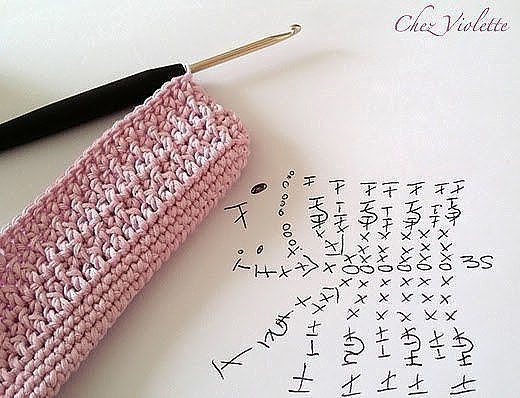 Chez Violette
35